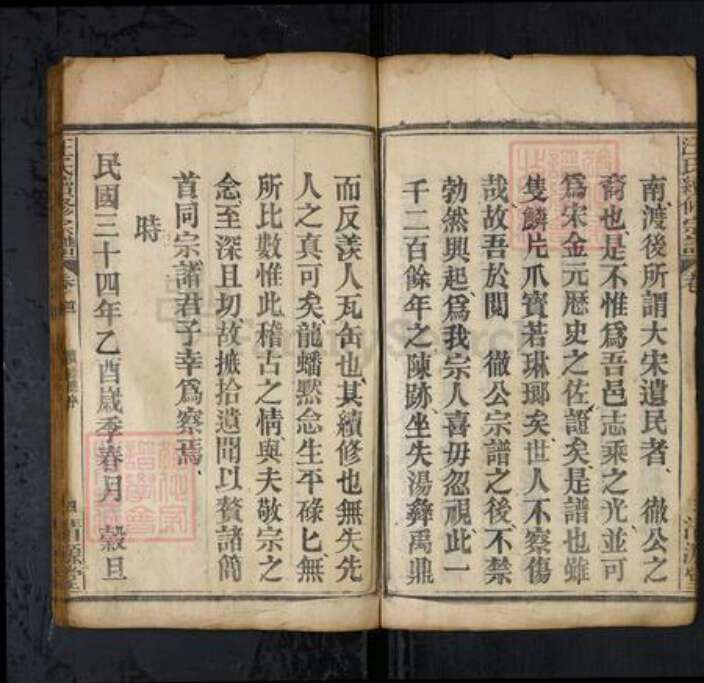 南渡後所謂大宋遺民者　徹公之
裔也是不惟爲吾邑志乘之光並可
爲宋金元歷史之佐證矣是譜也雖
隻鱗片爪寶若琳瑯矣世人不察傷
哉故吾於閱　徹公宗譜之後不禁
勃然興起爲我宗人喜毋忽視此一
千二百餘年之陳跡坐失湯彜禹鼎
而反羨人瓦缶也其續修也無失先
人之真可矣龍蟠黙念生平碌匕無
所比數惟此稽古之情與夫敬宗之
念至深且切故摭拾遺聞以贅諸簡
首同宗諸君子幸爲察焉
時
民國三十四年乙酉歲季春月　穀旦
汪氏續修宗譜　卷首　四　清源堂